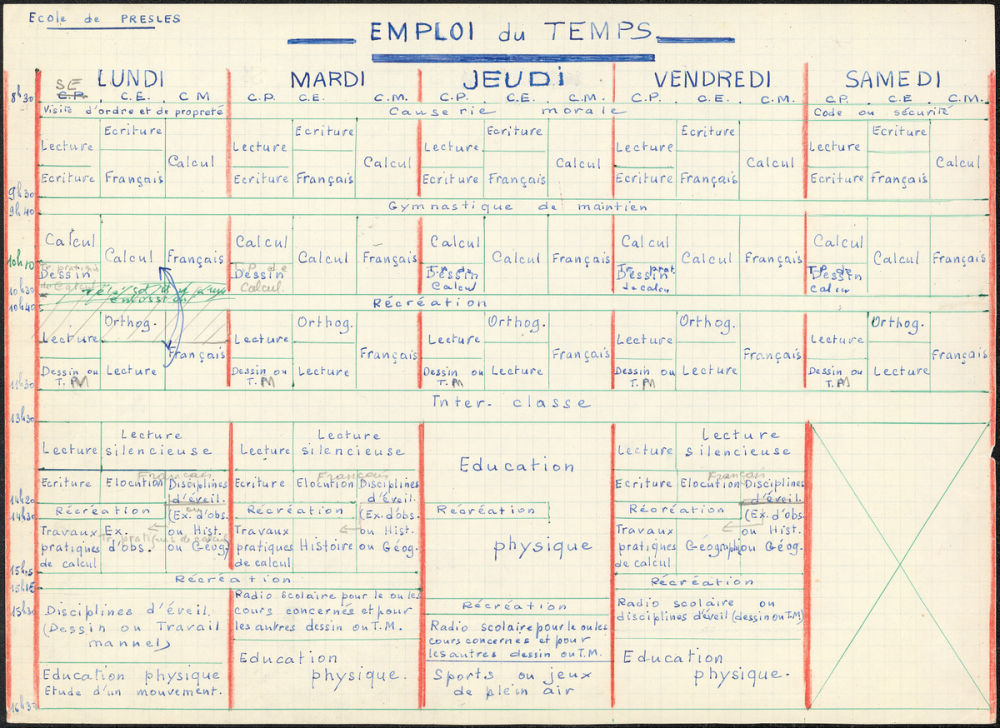 Ecole de PRESLES
EMPLOI du TEMPS
LUNDI MARDI JEUDI VENDREDI SAMEDI
S/E
8h30 C.P. C.E. C M C.P. C.E. C.M. C.P. C.E. C.M. C.P. C.E. C.M. C.P. C.E C.M.
Visite d'ordre et de propreté Causerie morale Code ou sécurité
Ecriture Ecriture Ecriture Ecriture Ecriture
Lecture Lecture Lecture Lecture Lecture
Calcul Calcul Calcul Calcul Calcul
Ecriture Français Ecriture Français Ecriture Français Ecriture Français Ecriture Français
9h30
9h40 Gymnastique de maintien
Calcul Calcul Calcul Calcul Calcul
Calcul Français Calcul Français Calcul Français Calcul Français Calcul Français
10h10
Tr. pratiques T.P. de T.P. de Tr. prat T.P. de
Dessin Dessin Dessin Dessin Dessin
de Calcul Calcul. Calcul de calcul Calcul
10h30
10h40 Récréation
Orthog. Orthog. Orthog. Orthog. Orthog.
Lecture Lecture Lecture Lecture Lecture
Français Français Français Français Français
Dessin ou Lecture Dessin ou Lecture Dessin ou Lecture Dessin ou Lecture Dessin ou Lecture
11h30 T. M T. M T. M T. M T. M
Inter- classe
13h30
Lecture Lecture Lecture
Lecture silencieuse Lecture silencieuse Education Lecture silencieuse
Français Français Français
Ecriture Elocution Disciplines Ecriture Elocution Disciplines Ecriture Elocution Disciplines
14h20 d'éveil. d'éveil. d'éveil.
14h30 Récréation (Ex. d'obs. Récréation (Ex. d'obs. Récréation Récréation (Ex. d'obs.
Travaux Ex. ou Hist. Travaux ou Hist. Travaux ou Hist.
pratiques d'obs. ou Géog) pratiques Histoire ou Géog. physique pratiques Géographie ou Géog.
Tr. pratiques de calcul
de calcul de calcul de calcul
15h05
15h15 Récréation Récréation Récréation
15h30 Radio scolaire pour le ou les Récréation Radio scolaire ou
Disciplines d'éveil. cours concernés et pour Radio scolaire pour le ou les disciplines d'éveil (dessin ou T.M)
(Dessin ou Travail les autres dessin ou T.M. cours concernés et pour
manuel) les autres dessin ou T.M.
Education Education
Education physique physique. Sports ou jeux physique.
Etude d'un mouvement. de plein air
16h30